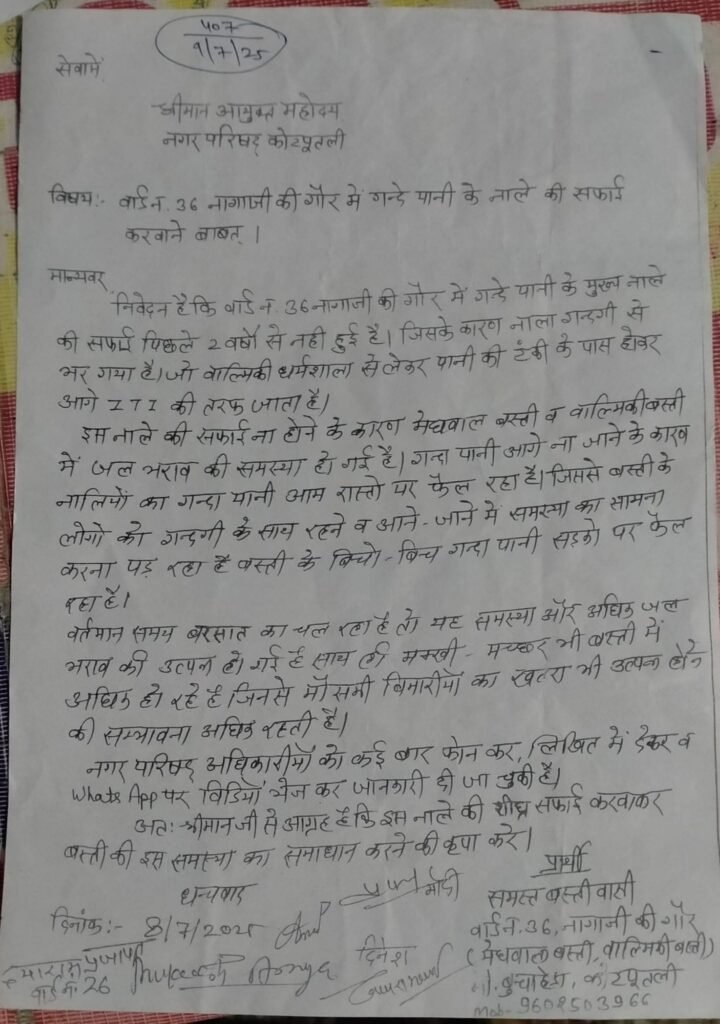 407
9/7/25
सेवामें
श्रीमान आयुक्त महोदय
नगर परिषद् कोटपूतली
विषय:- वार्ड न. 36 नागाजी की गौर में गन्दे पानी के नाले की सफाई
करवाने बाबत् ।
मान्यवर्
निवेदन है कि वार्ड न. 36 नागाजी की गौर में गन्दे पानी के मुख्य नाले
की सफाई पिछले 2 वर्षो से नही हुई है। जिसके कारण नाला गन्दगी से
भर गया है। जो वाल्मिकी धर्मशाला से लेकर पानी की टंकी के पास होकर
आगे ITI की तरफ जाता है।
इस नाले की सफाई ना होने के कारण मेघवाल बस्ती व वाल्मिकी बस्ती
में जल भराव की समस्या हो गई है। गन्दा पानी आगे ना जाने के कारण
नालियों का गन्दा पानी आम रास्तो पर फैल रहा है। जिससे बस्ती के
लोगो को गन्दगी के साथ रहने व आने-जाने में समस्या का सामना
करना पड़ रहा है बस्ती के बिचो-बिच गन्दा पानी सड़को पर फैल
रहा है।
वर्तमान समय बरसात का चल रहा है तो यह समस्या और अधिक जल
भराव की उत्पन हो गई है साथ ही मक्खी-मच्छर भी बस्ती में
अधिक हो रहे है जिनसे मौसमी बिमारीयों का खतरा भी उत्पन होने
की सम्भावना अधिक रहती है।
नगर परिषद् अधिकारीयों को कई बार फोन कर, लिखित में देकर व
WhatsApp पर विडियों भेज कर जानकारी दी जा चुकी है।
अतः श्रीमान जी से आग्रह है कि इस नाले की शीघ्र सफाई करवाकर
बस्ती की इस समस्या का समाधान करने की कृपा करे।
धन्यवाद
प्रार्थी
मोदी
समस्त बस्ती वासी
दिनांक:- 8/7/2025
वार्ड न. 36, नागाजी की गौर
दिनेश
(मेघवाल बस्ती, वाल्मिकी बस्ती)
वार्ड न. 26
बुचाहेड़ा, कोटपूतली
Mob- 9602503966